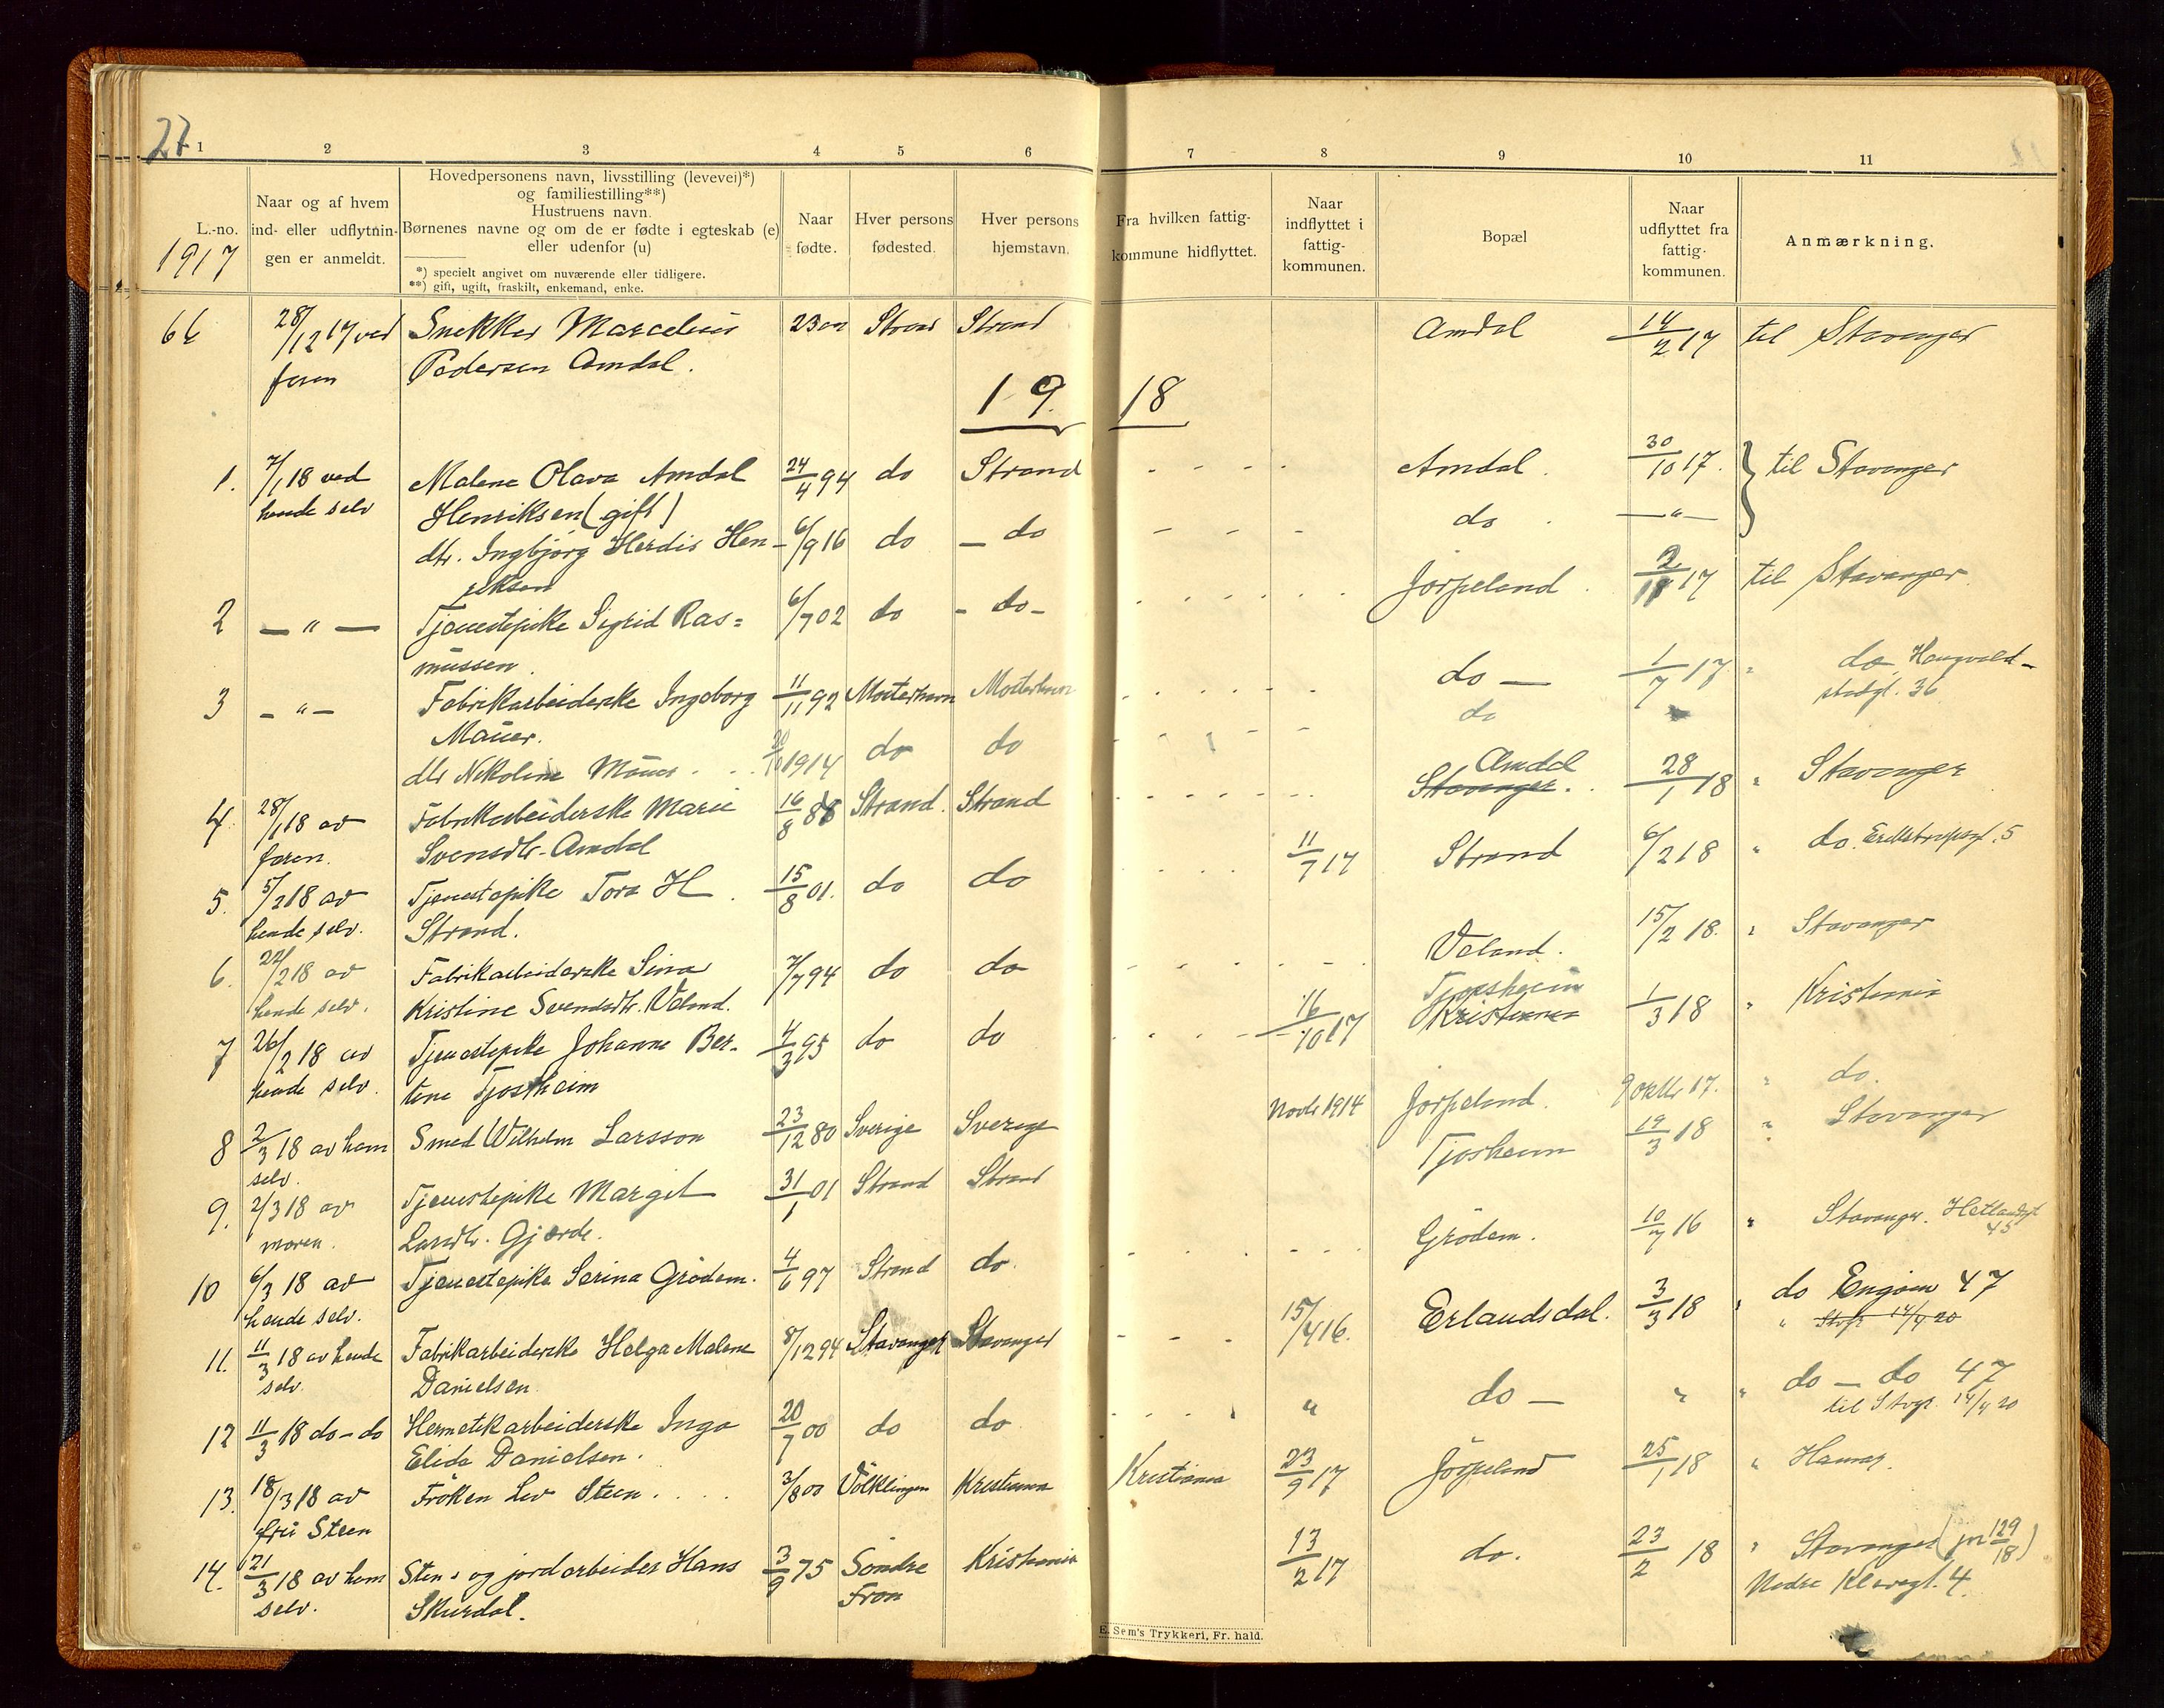 27
1 2 3 4 5 6 7 8 9 10 11
L.-no.
1917
Naar og af hvem
ind- eller udflytnin-
gen er anmeldt.
Hovedpersonens navn, livsstilling (levevei)*)
og familiestilling**)
Hustruens navn.
Børnenes navne og om de er fødte i egteskab (e)
eller udenfor (u)
*) specielt angivet om nuværende eller tidligere.
**) gift, ugift, fraskilt, enkemand, enke.
Naar
fødte.
Hver persons
fødested.
Hver persons
hjemstavn.
Fra hvilken fattig-
kommune hidflyttet.
Naar
indflyttet i
fattig-
kommunen.
Bopæl
Naar
udflyttet fra
fattig-
kommunen.
Anmærkning.
66 28/12 17 ved Snekker Marcelius Strand Strand Amdal 14/2 17 til Stavanger
faren Pedersen Amdal.
19 18
1. 7/1 18 ved Malene Olava Amdal 24/4 94 do Strand - - - - Amdal. 30/10 17. } til Stavanger
hende selv Henriksen (gift)
dtr. Ingbjørg Herdis Hen- 6/9 16 do — do - - - do — " —
riksen
2 — " — Tjenestepike Sigrid Ras= 6/7 02 do - do - Jørpeland 2/11 17 til Stavanger
mussen
3 - " - Fabrikarbeiderske Ingeborg 11/11 92 Mosterhavn Mosterhavn do — 1/7 17. " do Haugvald-
Mauer. stadgt. 36
dtr Nikoline Mauer 20/10 1914 do do do
4. 28/1 18 av Fabrikarbeiderske Marie 16/8 88 Strand. Strand Amdal 28/1 18 " Stavanger
faren. Svensdtr. Amdal Stavanger.
5. 5/2 18 av Tjenestepike Tora H. 15/8 01. do do 11/7 17 Strand 6/2 18 " do. Erikstrupsgt. 5
hende selv. Strand.
6. 22/2 18 av Fabrikarbeiderske Sina 7/7 94 do do Veland. 15/2 18. " Stavanger
hende selv. Kristine Svendsdtr. Veland.
7 26/2 18 av Tjenestepike Johanne Ber- 4/3 95 do do 16/10 17 Tjøsheim 1/3 18 " Kristiania
hende selv. tine Tjøstheim Kristiania
8 2/3 18 av ham Smed Wilhelm Larsson 23/12 80 Sverige Sverige Novbr 1914 Jørpeland. 9 oktbr 17. " do.
selv.
9. 2/3 18 av Tjenestepike Margit 31/1 01 Strand Strand Tjøsheim 19/3 18 " Stavanger
moren. Larsdtr. Gjerde.
10 6/3 18 av Tjenestepike Serina Grødem. 4/6 97 Strand do. Grødem. 10/7 16 " Stavanger. Hetlandsgt
hende selv. 45
11. 11/3 18 av hende Fabrikarbeiderske Helga Malene 8/12 94 Stavanger Stavanger - - - 15/4 16. Erlandsdal. 3/3 18 " do Engøen 47
selv. Danielsen. " Stvgr 14/4 20
12 11/3 18 do - do Hermetikarbeiderske Inga 20/7 00 do do. " do — " " do — do 47
Elida Danielsen. til Stvgr. 14/4 20
13. 18/3 18 av Frøken Liv Steen. . . . 3/8 00 Völklingen Kristiania Kristiania 23/9 17 Jørpeland 25/1 18 " Hamar.
fru Steen
14. 21/3 18 av ham Sten- og jordarbeider Hans 3/9 75 Söndre Kristiania 13/2 17 do. 23/2 18 " Stavanger (jnr 129/18)
selv. Skurdal. Fron Nedre Klevegt. 4.
E. Sem's Trykkeri, Fr. hald.